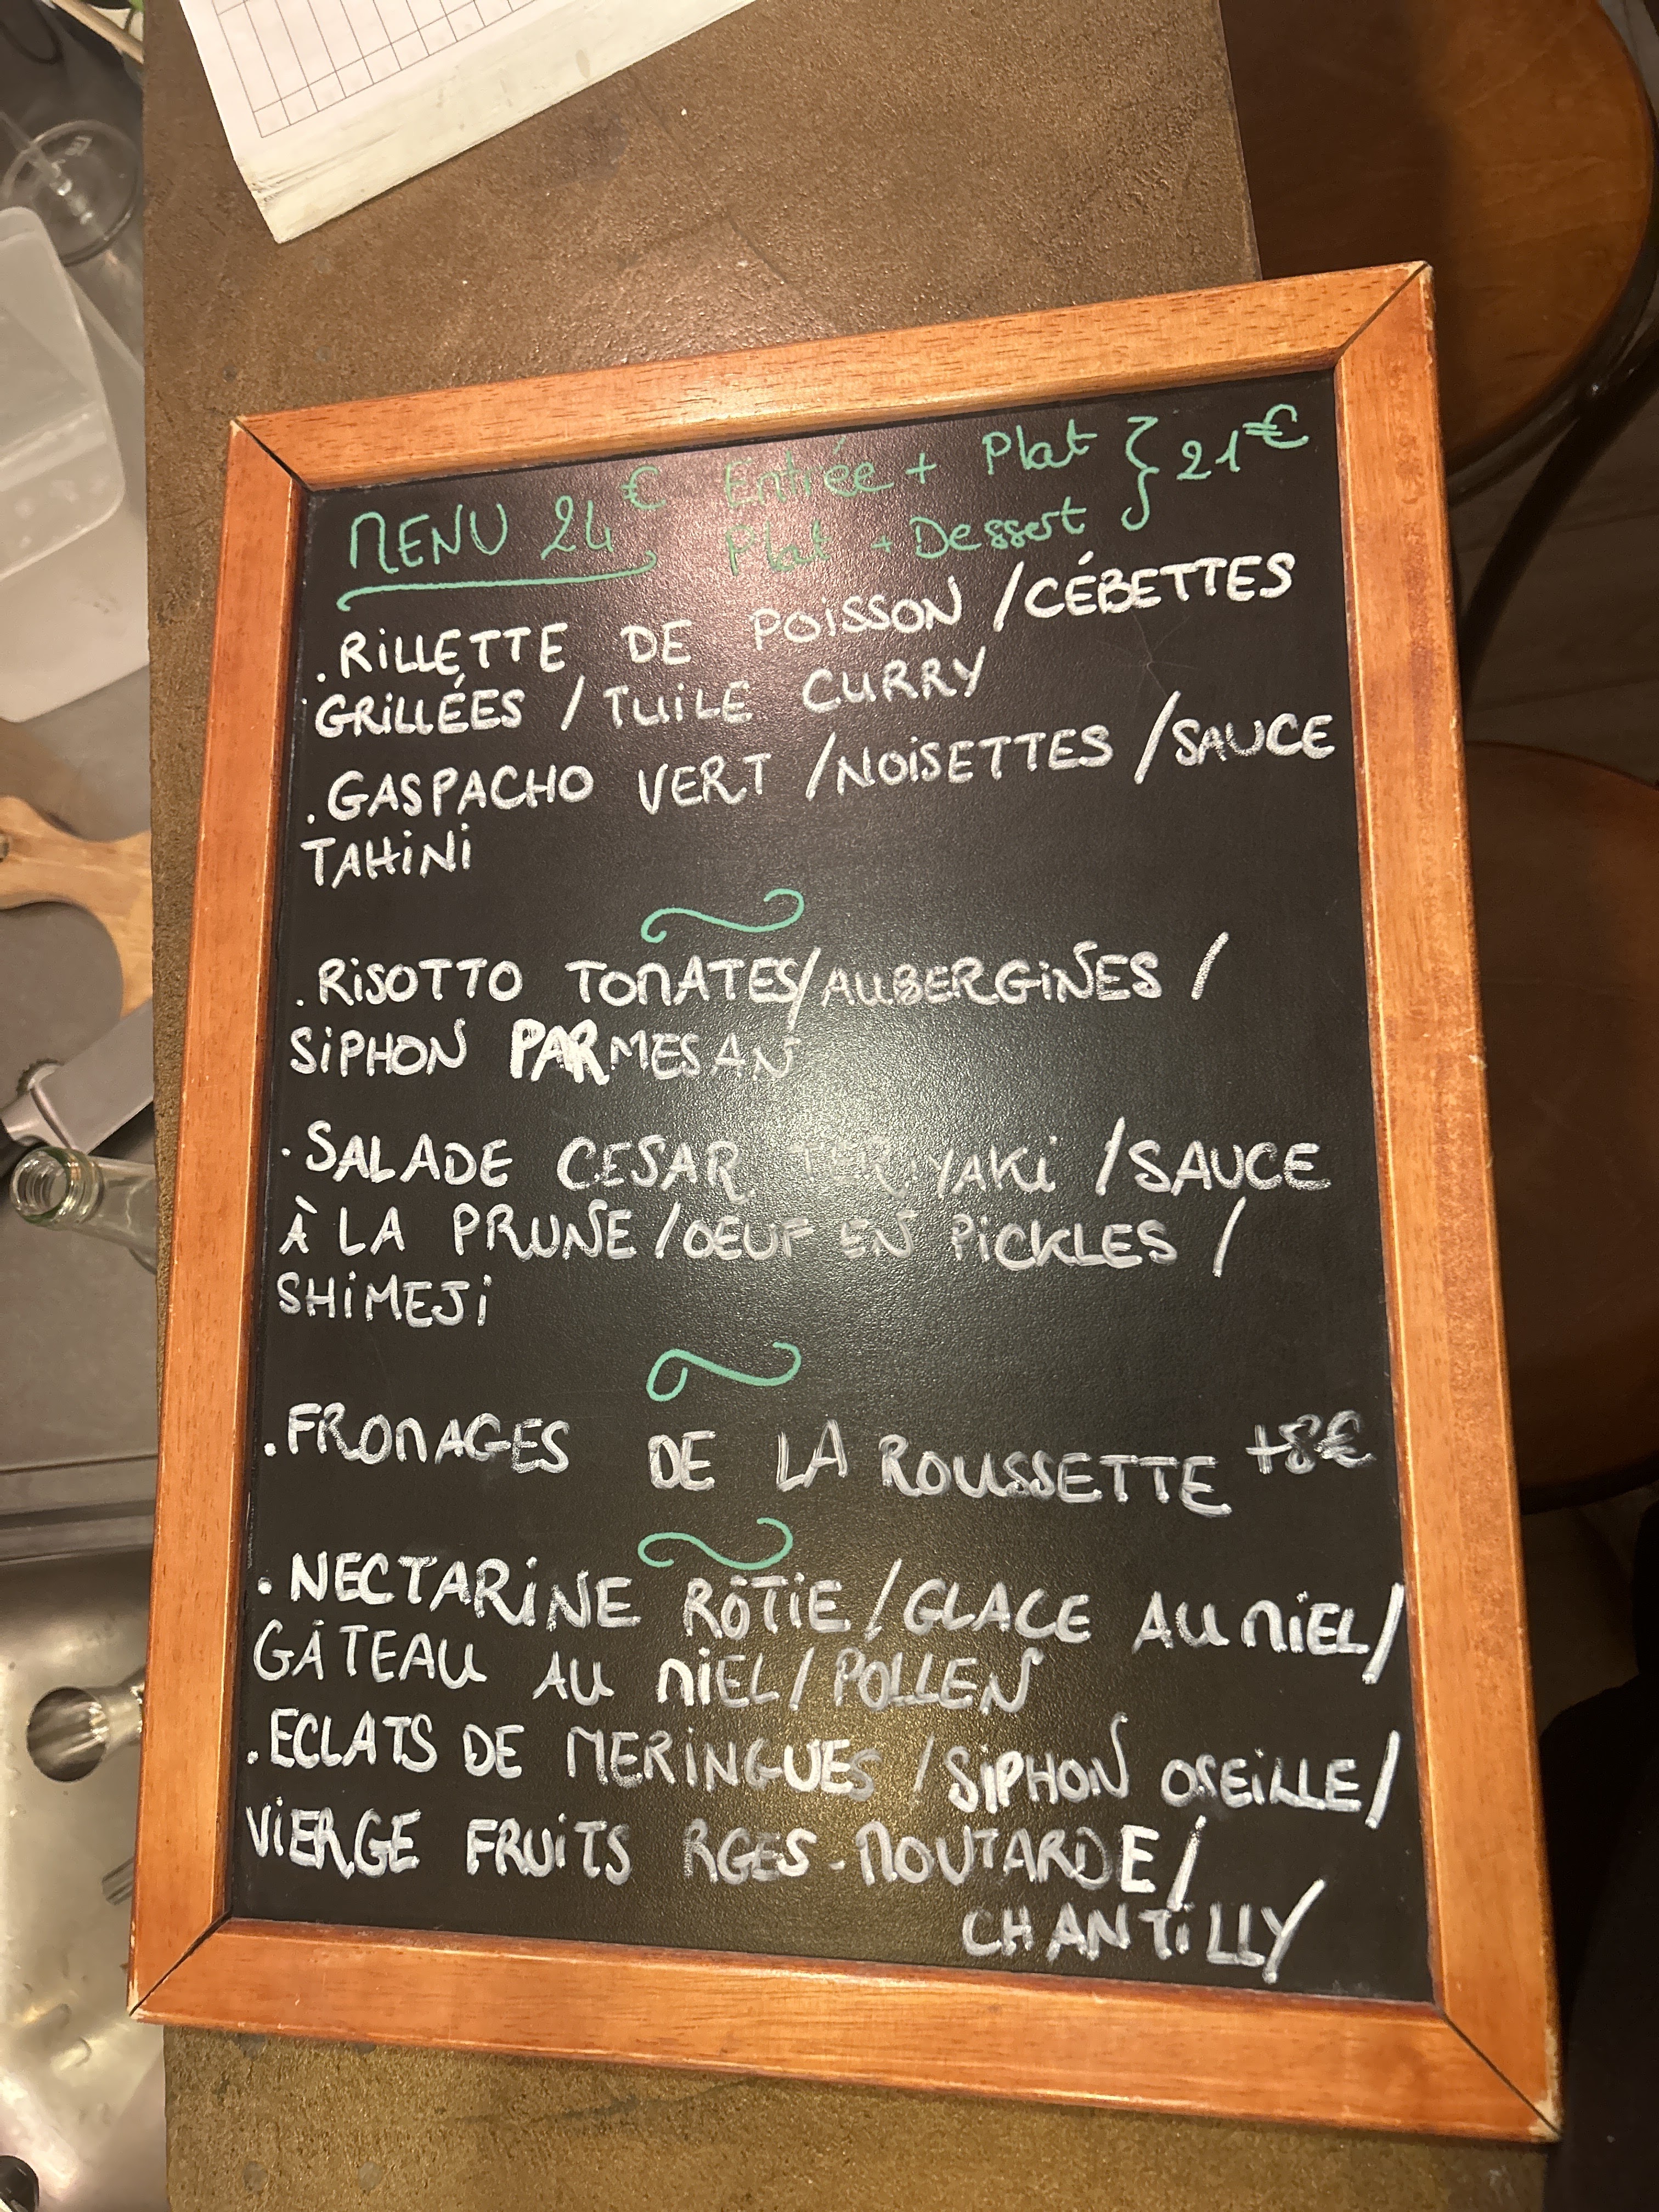 MENU 24€ Entrée + Plat } 21€
Plat + Dessert
. RILLETTE DE POISSON / CÉBETTES
GRILLÉES / TUILE CURRY
. GASPACHO VERT / NOISETTES / SAUCE
TAHINI
. RISOTTO TOMATES / AUBERGINES /
SIPHON PARMESAN
. SALADE CESAR TERIYAKI / SAUCE
À LA PRUNE / OEUF EN PICKLES /
SHIMEJI
. FROMAGES DE LA ROUSSETTE +8€
. NECTARINE RÔTIE / GLACE AU MIEL /
GÂTEAU AU MIEL / POLLEN
. ECLATS DE MERINGUES / SIPHON OSEILLE /
VIERGE FRUITS RGES - MOUTARDE /
CHANTILLY